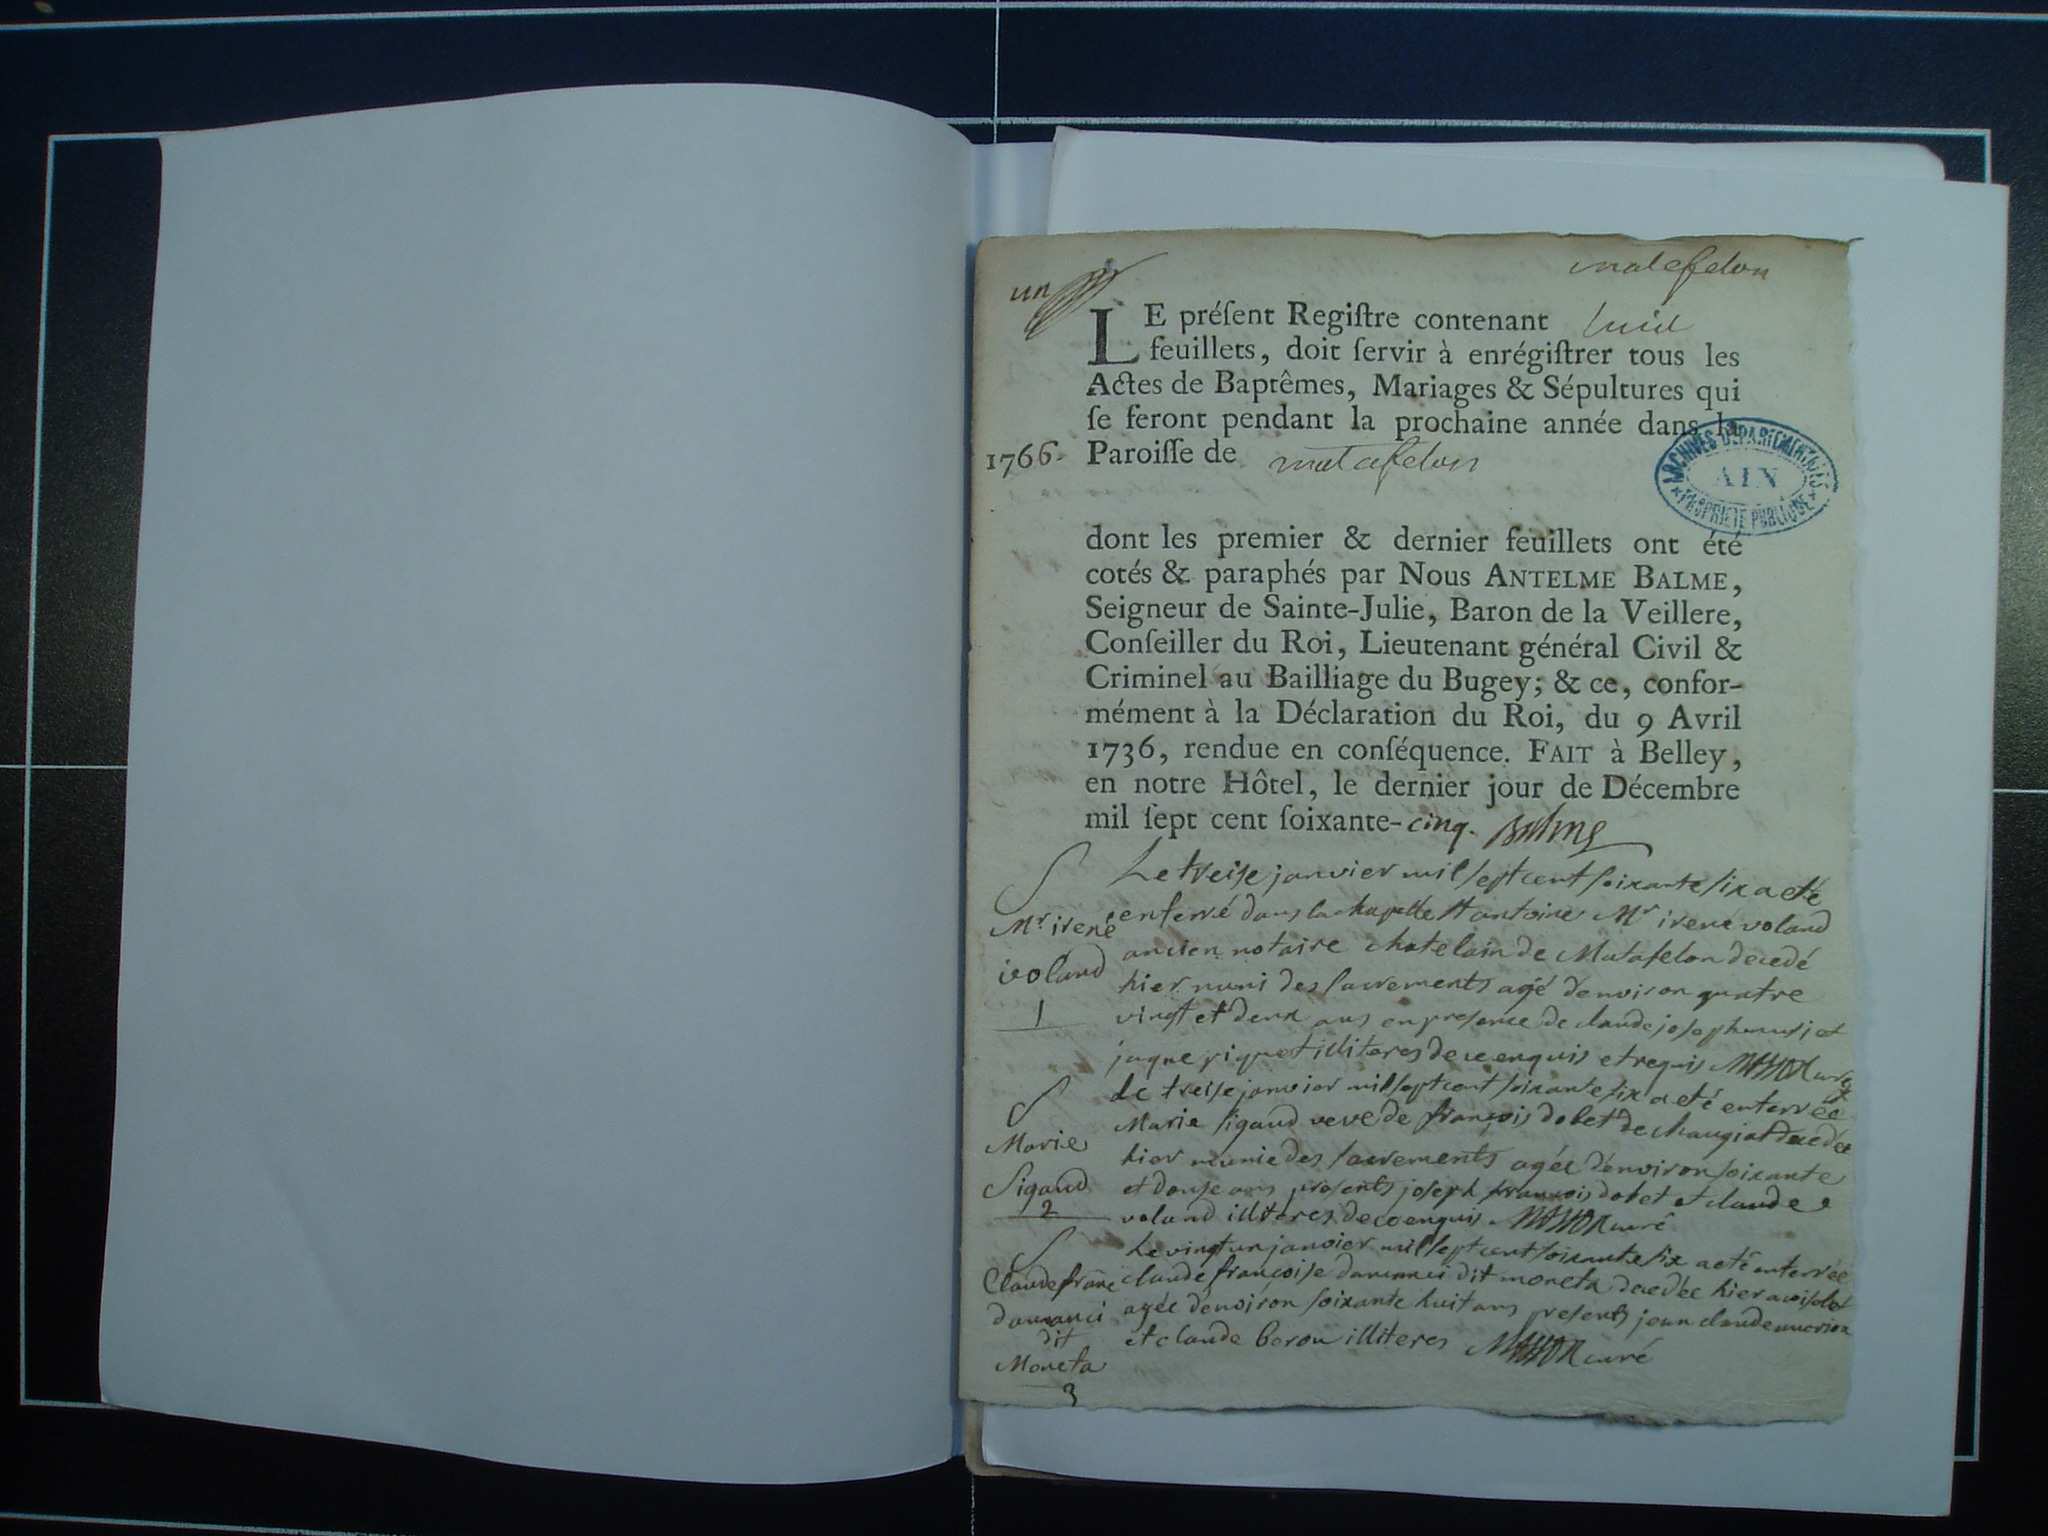 matafelon
un
LE préſent Regiſtre contenant huit
feuillets, doit ſervir à enrégiſtrer tous les
Actes de Baptêmes, Mariages & Sépultures qui
ſe feront pendant la prochaine année dans la
1766. Paroiſſe de matafelon
ARCHIVES DÉPARTEMENTALES
AIN
PROPRIÉTÉ PUBLIQUE
dont les premier & dernier feuillets ont été
cotés & paraphés par Nous ANTELME BALME,
Seigneur de Sainte-Julie, Baron de la Veillere,
Conſeiller du Roi, Lieutenant général Civil &
Criminel au Bailliage du Bugey; & ce, confor-
mément à la Déclaration du Roi, du 9 Avril
1736, rendue en conſéquence. FAIT à Belley,
en notre Hôtel, le dernier jour de Décembre
mil ſept cent ſoixante-cinq. Balme
S
Mr. irené
voland
1
Le treise janvier mil sept cent soixante six a eté
enterré dans la chapelle st antoine Mr irene voland
ancien notaire chatelain de Matafelon decedé
hier muni des sacrements agé denviron quatre
vingt et deux ans en presence de claude joseph et
jaque piquet illiteres de ce enquis et requis curé
S
Marie
Sigaud
2
Le treise janvier mil sept cent soixante six a eté enterrée
Marie Sigaud veve de françois dobet de chaugiat decedée
hier munie des sacrements agée d'environ soixante
et douse ans presents joseph françois dobet et claude
voland illiteres de ce enquis curé
S
Claude franc
damanci
dit
Moneta
3
Le vingt un janvier mil sept cent soixante six a eté enterrée
claude françoise damanci dit moneta decedée hier
agée d'environ soixante huit ans presents jean claude
et claude beron illiteres curé